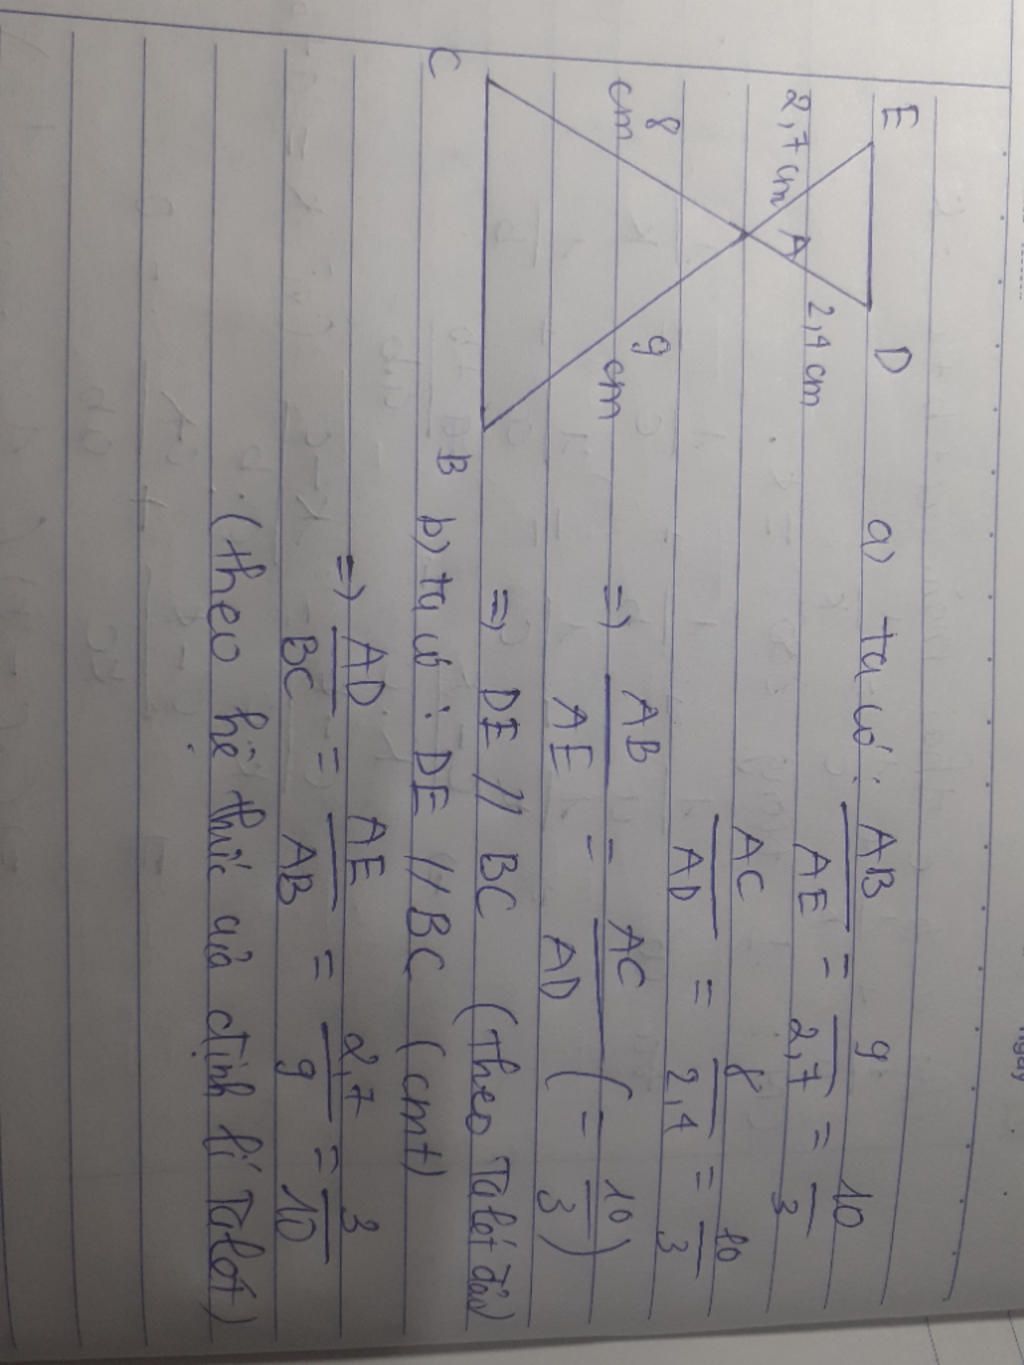 E
D
2,7 cm
A
2,4 cm
8
cm
9
cm
C
B
a) ta có: AB/AE = 9/2,7 = 10/3
AC/AD = 8/2,4 = 10/3
=> AB/AE = AC/AD (= 10/3)
=> DE // BC (theo Talét đảo)
b) ta có: DE // BC (cmt)
=> AD/BC = AE/AB = 2,7/9 = 3/10
(theo hệ thức của định lí Talét)